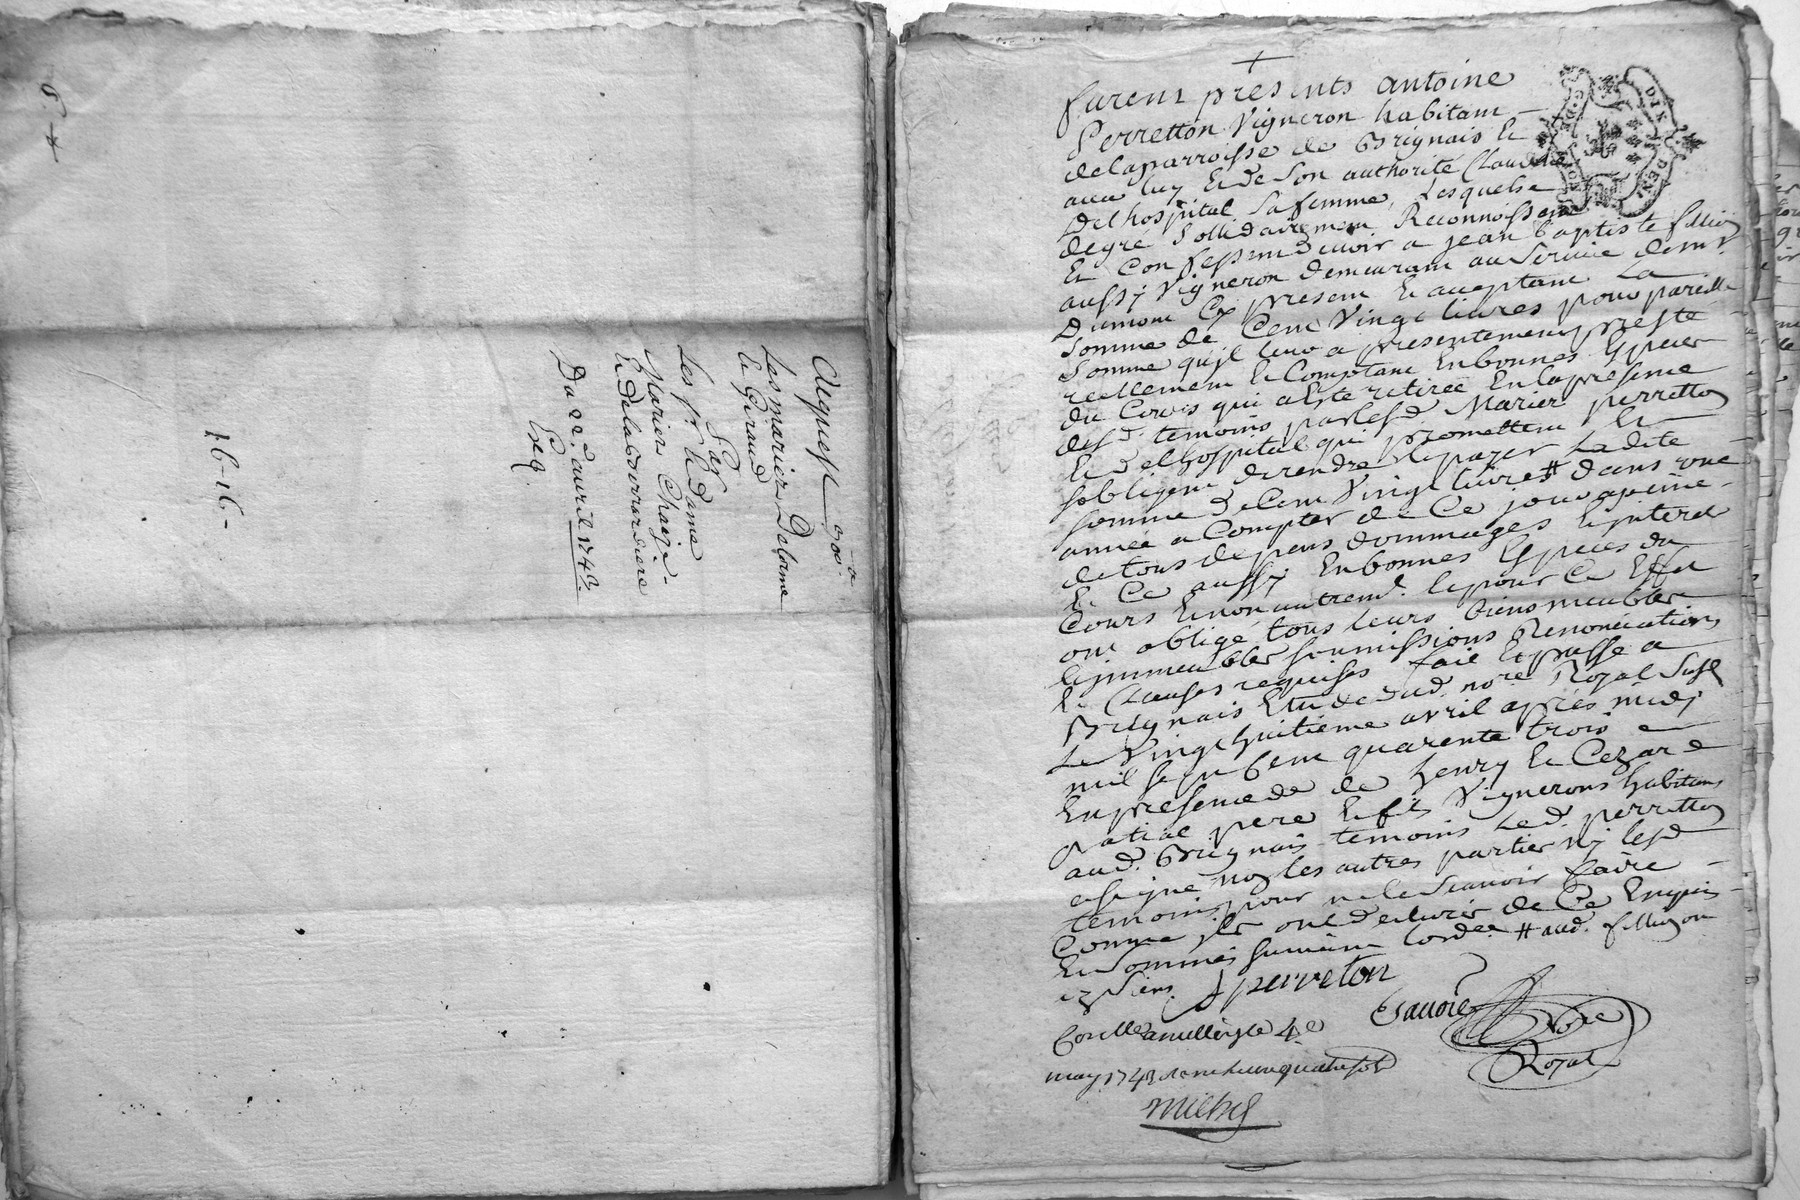 Acquest 30# a
Les mariez Delorme
et Giraud
Par
Les Sr et Dame
Mariez Chaize
et De la Verrardiere
Du 22e auril 1743
Exeq
16-16-
furent presents antoine
Perretton Vigneron habitant
de la parroisse de Brignais et
auec luy et de son authorité Claudine
Delhospital sa femme, Lesquels
de gre solidairement Reconnoissent
Et Confessent deuoir a jean baptiste fillion
aussy Vigneron demeurant au Seruice de mr
Dumont Cy present et acceptant La
Somme de Cent Vingt liures pour pareille
Somme qu'il leur a presentement preste
reellement et Comptant En bonnes Especes
du Cours qui a Este retirée En la presence
desd. temoins par lesd Mariez perretton
Et Delhospital qui promettent et
sobligent de rendre et payer Ladite
somme de Cent Vingt liures # dans une
année a Compter de Ce jour a peine
de tous depens dommages et jnterest
Et Ce aussy En bonnes Especes du
Cours et non autremt. Et pour Ce Effet
ont obligé tous leurs biens meubles
et jmmeubles soumissions Renonciations
Et Clauses requises fait Et passé a
Brignais Etude dud. nore Royal Susd
Le Vingt huitieme avril apres midy
mil sept Cent quarente trois
En presence de de henry et Cezare
Ratiae pere et fils Vignerons habitans
aud. Brignais temoins Led. perretton
a signé non les autres parties ny lesd
temoins pour ne le Scauoir faire
Comme jls ont declaré de Ce Enquis
Et Sommés suiuant Lordce # aud. fillion
cy Viens
A perreton
Sauoie
Nore
Royal
Conlle a millery le 4e
may 1743
Michel